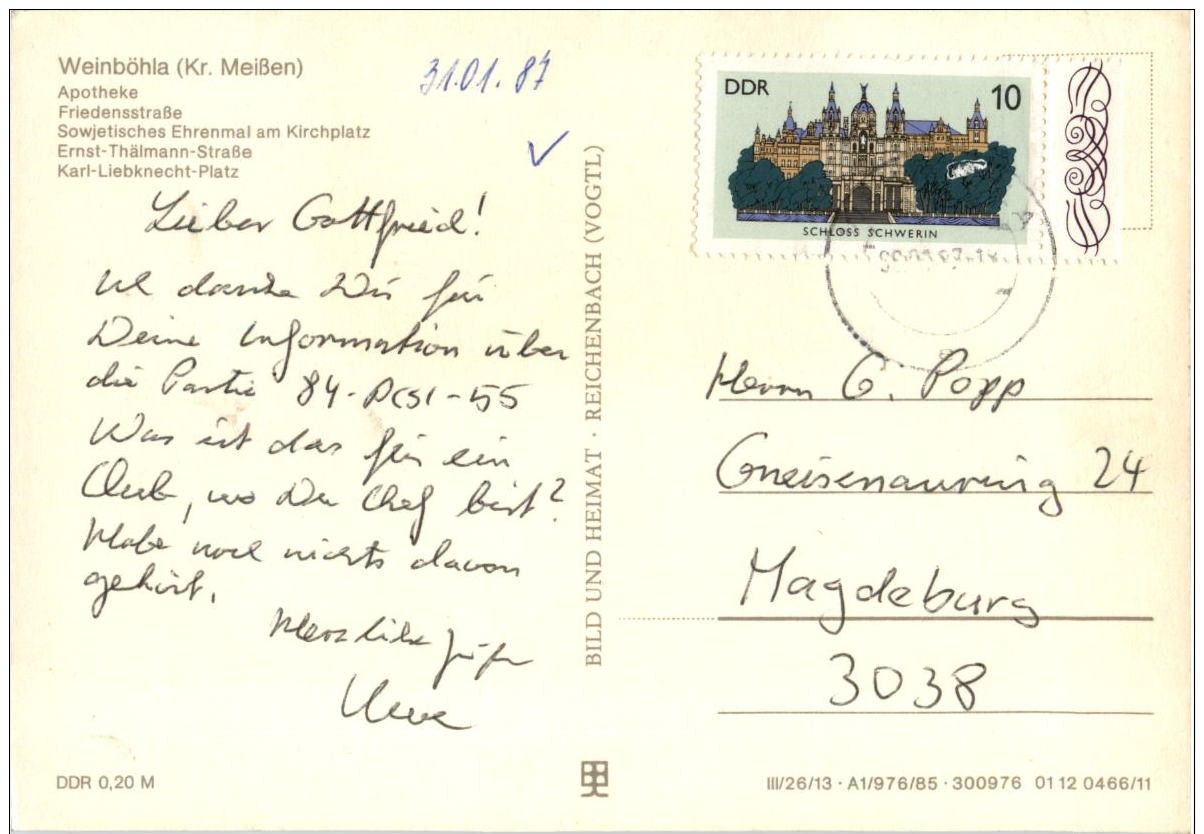 Weinböhla (Kr. Meißen)
Apotheke
Friedensstraße
Sowjetisches Ehrenmal am Kirchplatz
Ernst-Thälmann-Straße
Karl-Liebknecht-Platz
31.01.87
Lieber Gottfried!
Ich danke Dir für
Deine Information über
die Partie 84-PCSI-55
Was ist das für ein
Club, wo Du Chef bist?
Habe noch nichts davon
gehört.
Herzliche Grüße
Uwe
DDR 0,20 M
BILD UND HEIMAT · REICHENBACH (VOGTL)
DDR
10
SCHLOSS SCHWERIN
Herrn G. Popp
Gneisenauring 24
Magdeburg
3038
III/26/13 · A1/976/85 · 300976 01 12 0466/11